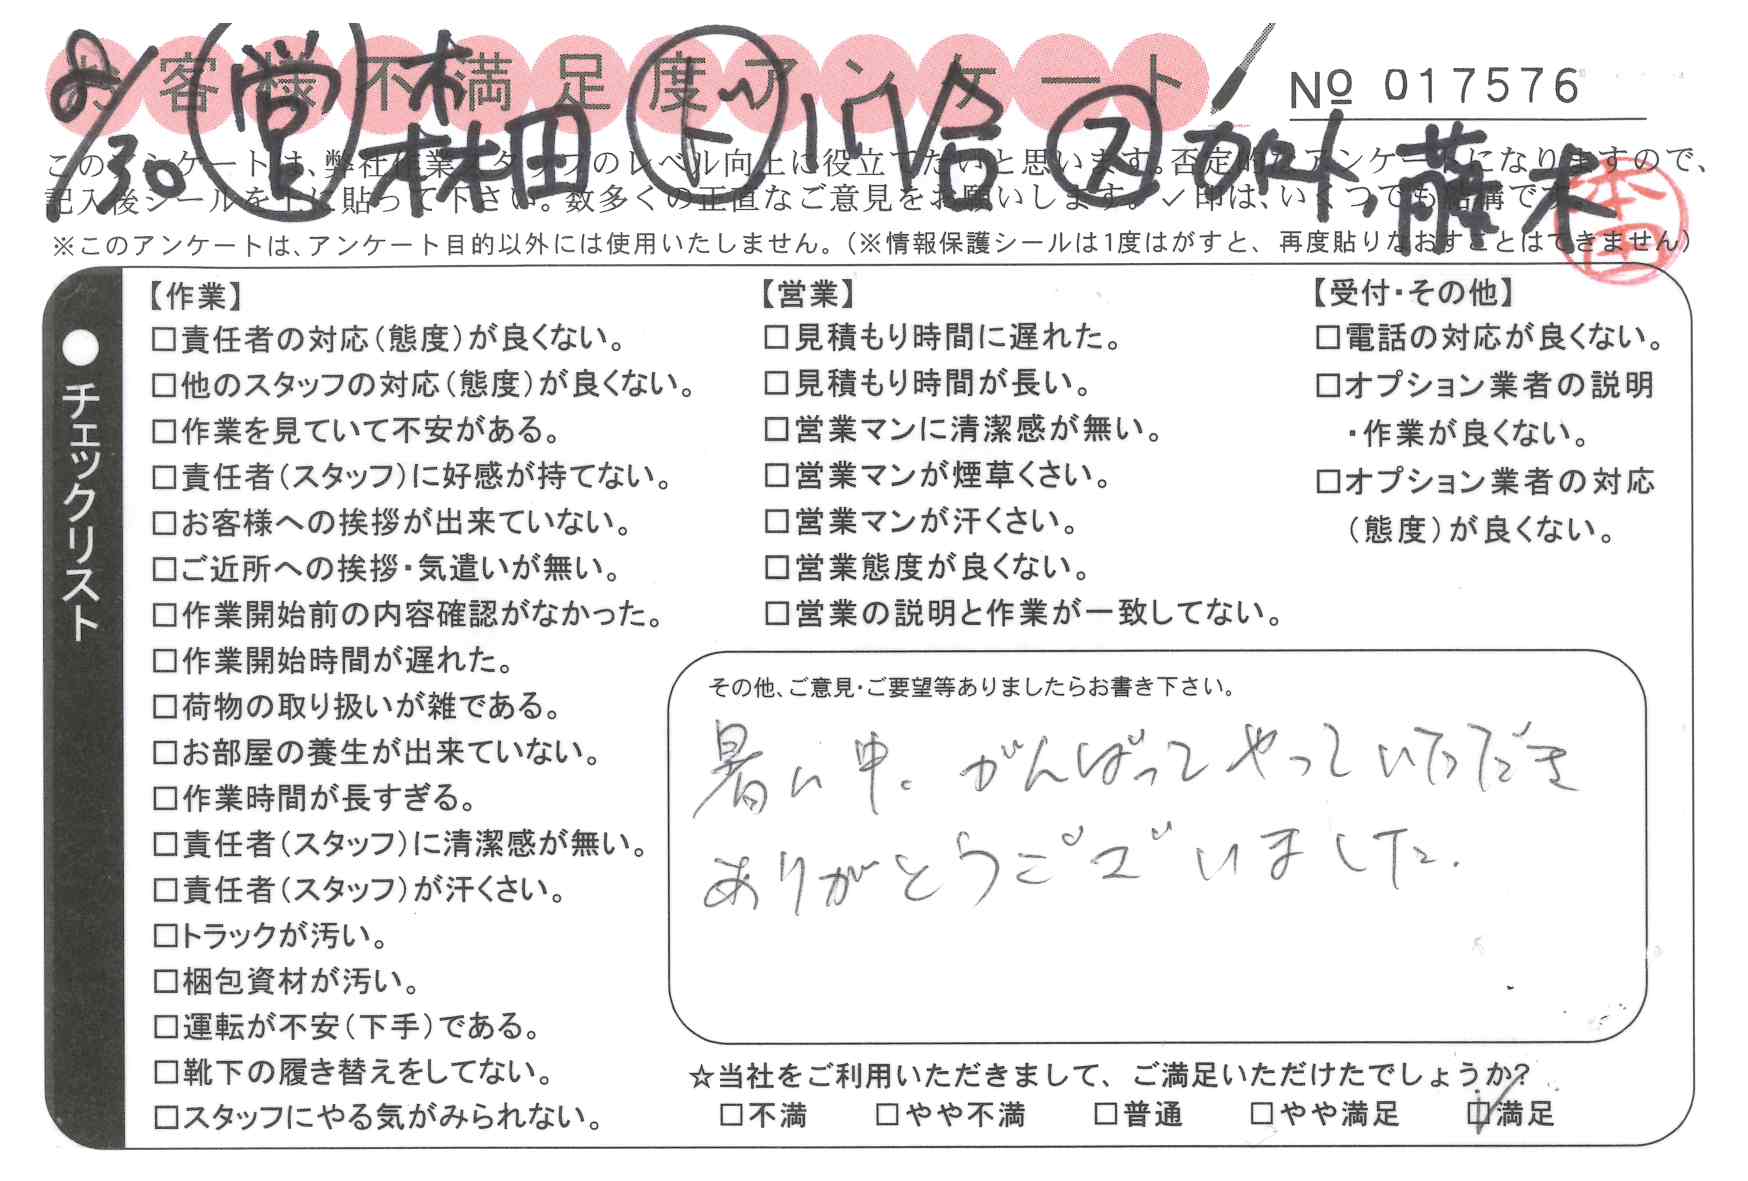 お客様不満足度アンケート
№ 017576
8/30 営 森田 ト 川合 ス 加ト、藤木
このアンケートは、弊社作業スタッフのレベル向上に役立てたいと思います。否定的なアンケートになりますので、
記入後シールを上に貼って下さい。数多くの正直なご意見をお願いします。✓印は、いくつでも結構です。
※このアンケートは、アンケート目的以外には使用いたしません。(※情報保護シールは1度はがすと、再度貼りなおすことはできません)
本田
●チェックリスト
【作業】
□責任者の対応(態度)が良くない。
□他のスタッフの対応(態度)が良くない。
□作業を見ていて不安がある。
□責任者(スタッフ)に好感が持てない。
□お客様への挨拶が出来ていない。
□ご近所への挨拶・気遣いが無い。
□作業開始前の内容確認がなかった。
□作業開始時間が遅れた。
□荷物の取り扱いが雑である。
□お部屋の養生が出来ていない。
□作業時間が長すぎる。
□責任者(スタッフ)に清潔感が無い。
□責任者(スタッフ)が汗くさい。
□トラックが汚い。
□梱包資材が汚い。
□運転が不安(下手)である。
□靴下の履き替えをしてない。
□スタッフにやる気がみられない。
【営業】
□見積もり時間に遅れた。
□見積もり時間が長い。
□営業マンに清潔感が無い。
□営業マンが煙草くさい。
□営業マンが汗くさい。
□営業態度が良くない。
□営業の説明と作業が一致してない。
【受付・その他】
□電話の対応が良くない。
□オプション業者の説明
・作業が良くない。
□オプション業者の対応
(態度)が良くない。
その他、ご意見・ご要望等ありましたらお書き下さい。
暑い中、がんばってやっていただき
ありがとうございました。
☆当社をご利用いただきまして、ご満足いただけたでしょうか?
□不満 □やや不満 □普通 □やや満足 ☑満足